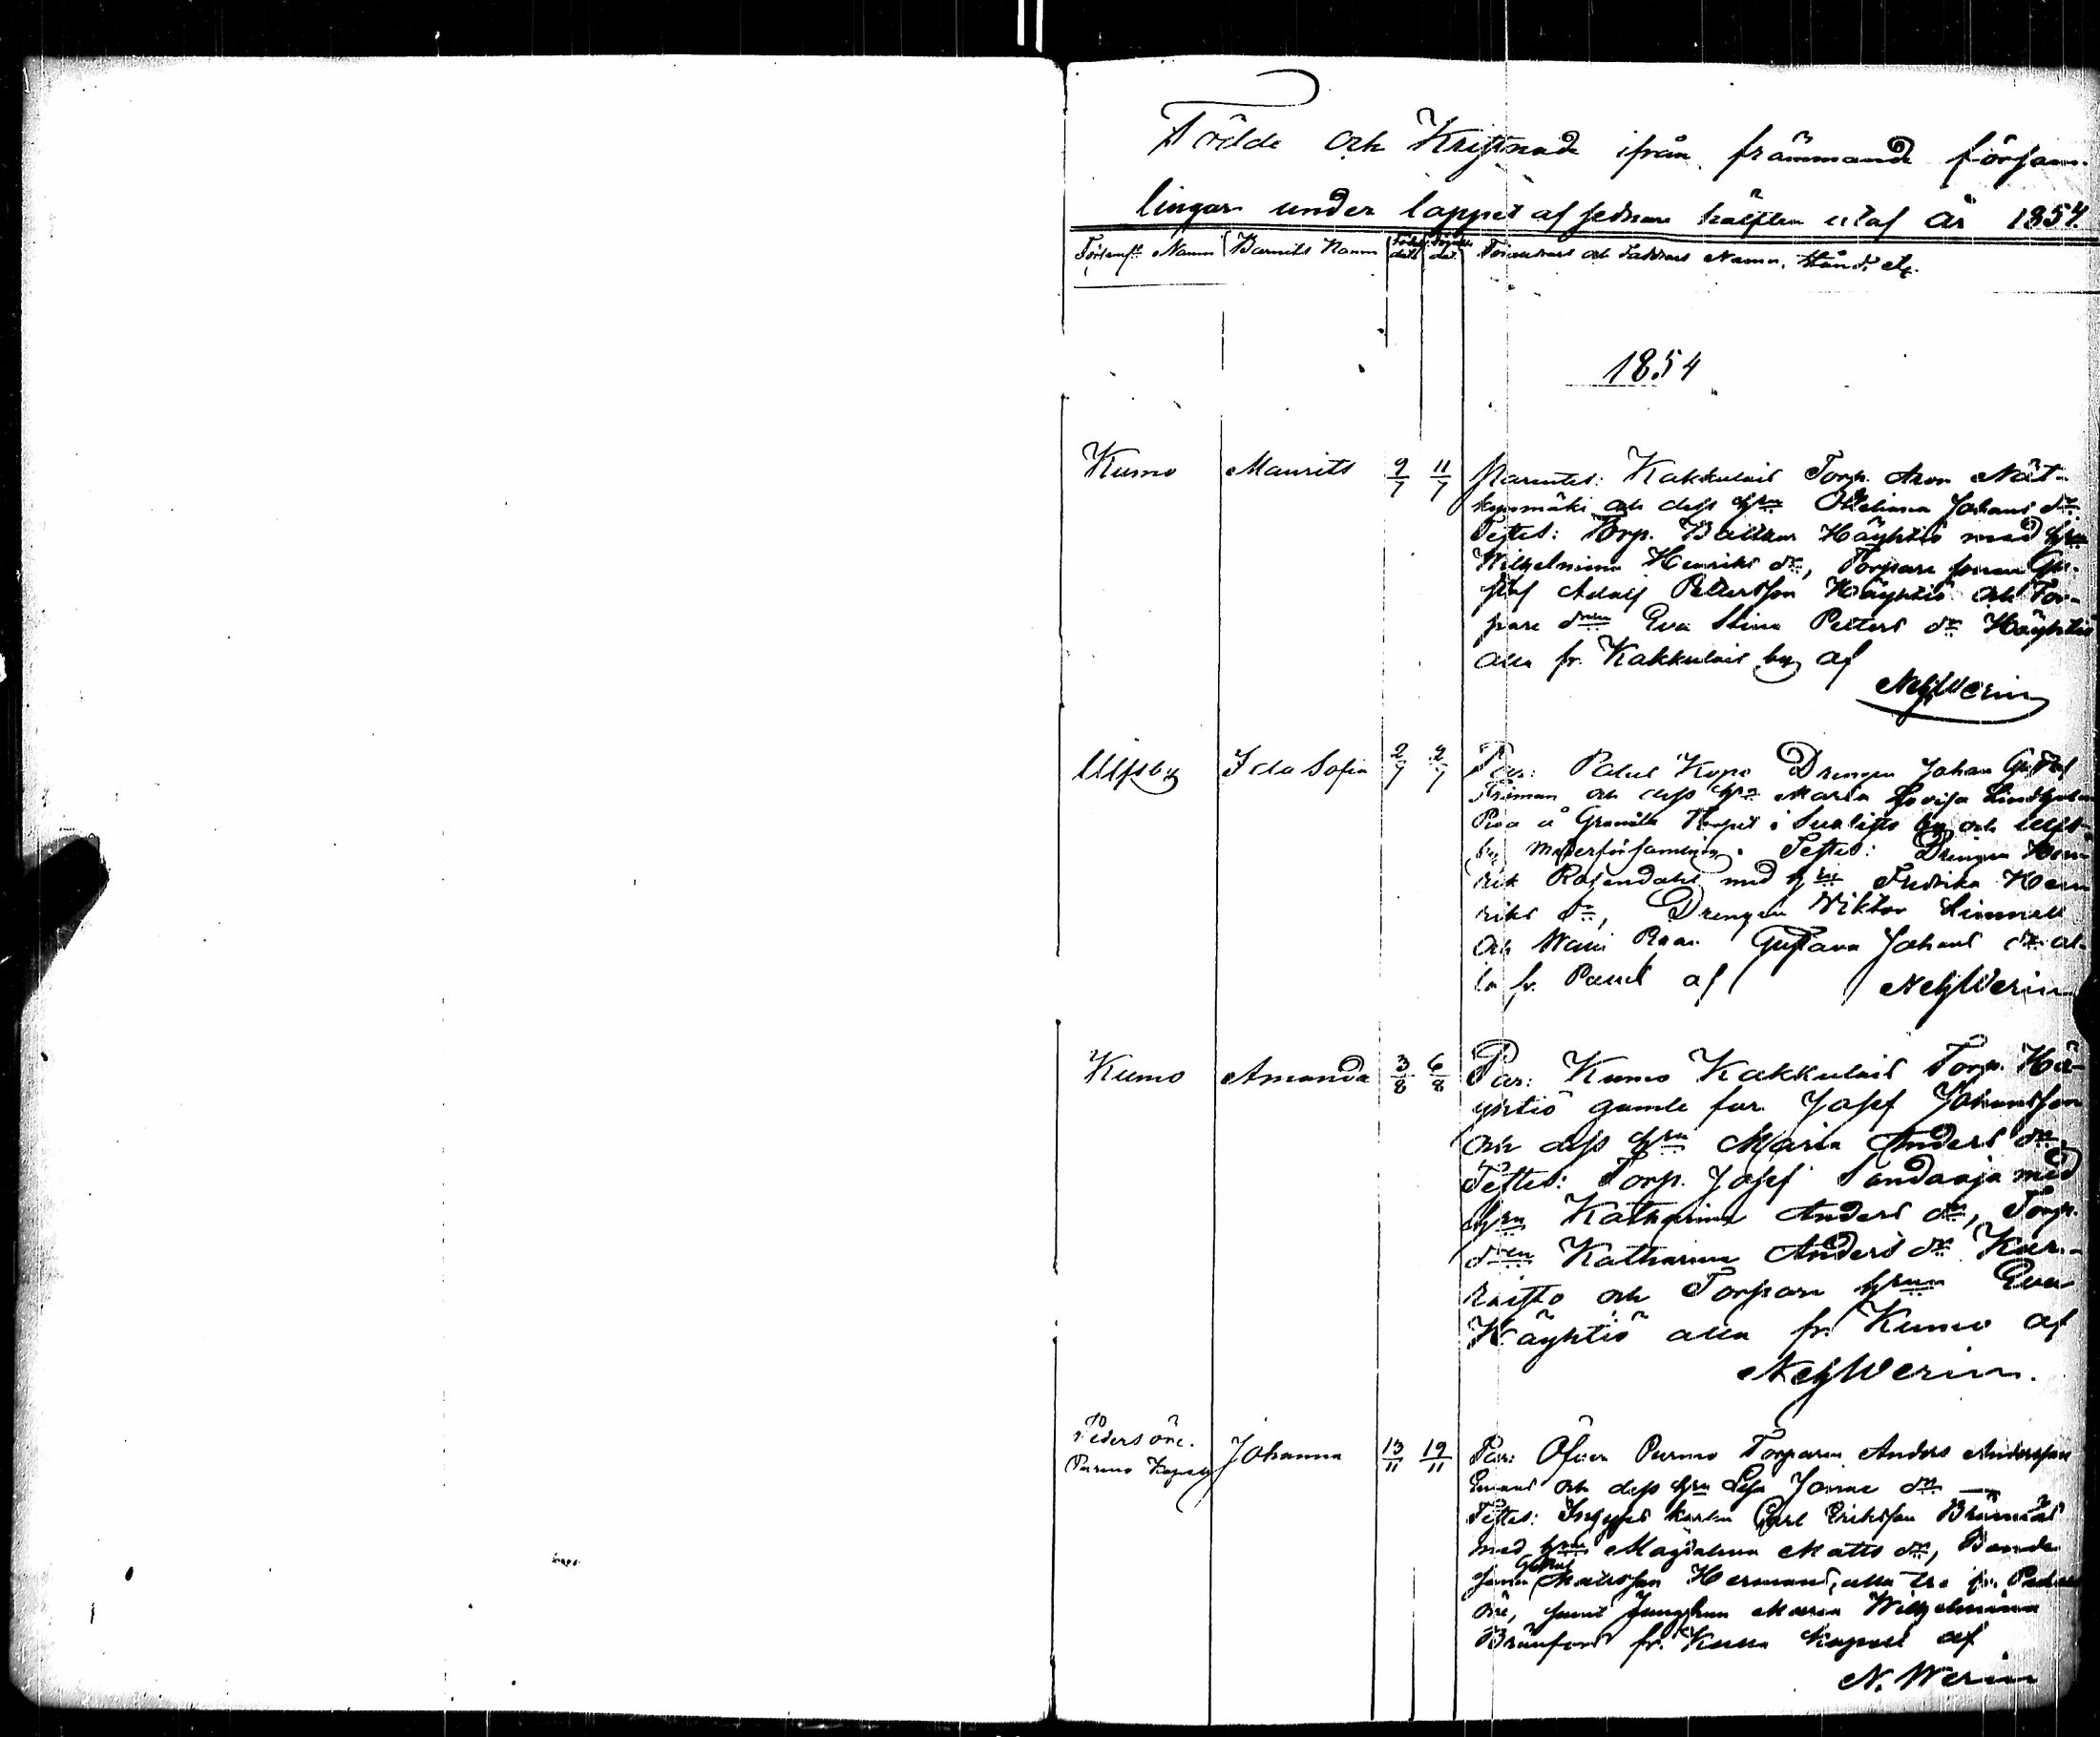 Födde och Kristnade ifrån främmande försam-
lingar under loppet af sednare hälften utaf år 1854.
Församls Namn Barnets Namn Födel. dat. Döpelse dat. Föräldrars och Faddrars Namn, stånd, etc.
1854
Kumo Maurits 9/7 11/7 Parentes: Kakkulais Torp. Aron Nät-
kynmäki och dess hru Johans dr.
Testes: Torp. Balthar Häyhtiö med hru
Wilhelmina Henriks dr, Torpare sonen Gu-
staf Adolf Pettersson Häyhtiö och Tor-
pare dren Eva Stina Petters dr Häyhtiö
alla fr. Kakkulais by af
NehjWerin
Ulfsby Ida Sofia 2/7 9/7 Par: Drengen Johan Gustaf
Friman och dess hru Maria Lovisa Lindholm
Piga å Granita Torpet i by och Ulfs-
by Moderförsamling. Testes: Drengen Hen-
rik Rosendahl med hru Fredrika Hen-
riks dr, Drengen Viktor
och Gustava Johans dr al-
la fr. af NehjWerin
Kumo Amanda 3/8 6/8 Par: Kumo Kakkulais Torp. Hä-
yhtiö gamle far Josef Johansson
och dess hru Maria Anders dr.
Testes: Torp. Josef Sandaoja med
hru Katharina Anders dr, Torp.
dren Katharina Anders dr Kar-
risto och Torpare hrun Eva
Häyhtiö alla fr. Kumo af
NehjWerin.
Pedersöre.
Purmo Kapell Johanna 13/11 19/11 Par: Öfver Purmo Torparen Anders Andersson
och dess hru Lisa dr
Testes: Inhyses karlen Carl Eriksson
med hru Magdalena Matts dr, Bonde
sonen Gustaf Mattsson Herman, alla tre fr. Peders-
öre, samt Jungfrun Maria Wilhelmina
fr. kapell af
N. Werin